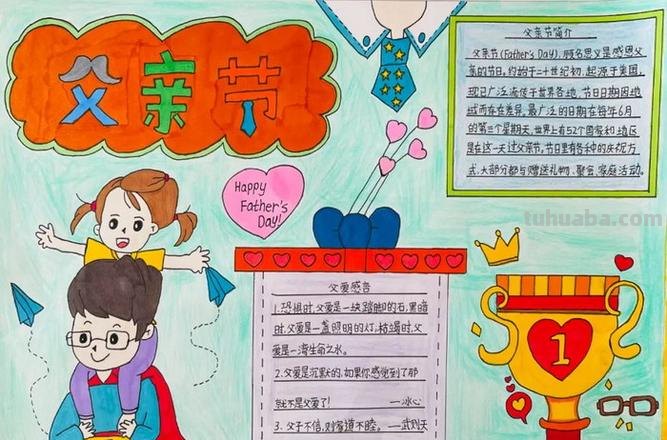 父亲节
父亲节简介
父亲节(Father's Day),顾名思义是感恩父
亲的节日。约始于二十世纪初,起源于美国,
现已广泛流传于世界各地,节日日期因地
域而存在差异。最广泛的日期在每年6月
的第三个星期天,世界上有52个国家和地区
是在这一天过父亲节。节日里有各种的庆祝方
式,大部分都与赠送礼物、聚会、家庭活动。
Happy
Father's
Day!
tuhuaba.com
父爱感言
1.恐惧时,父爱是一块踏脚的石;黑暗
时,父爱是一盏照明的灯;枯竭时,父
爱是一湾生命之水。
2.父爱是沉默的,如果你感觉到了那
就不是父爱了! —冰心
3.父子不信,则家道不睦。 —武则天
1